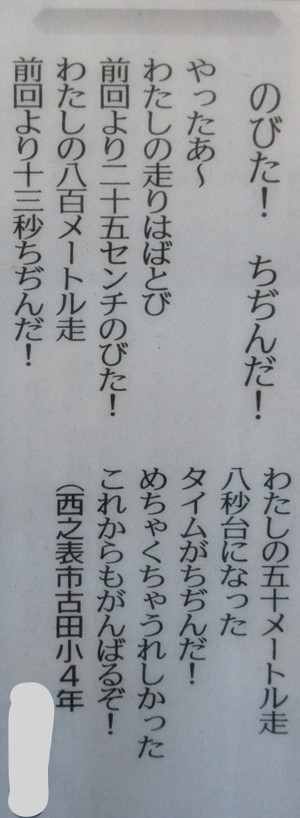 のびた！　ちぢんだ！
やったあ〜
わたしの走りはばとび
前回より二十五センチのびた！
わたしの八百メートル走
前回より十三秒ちぢんだ！
わたしの五十メートル走
八秒台になった
タイムがちぢんだ！
めちゃくちゃうれしかった
これからもがんばるぞ！
（西之表市古田小４年